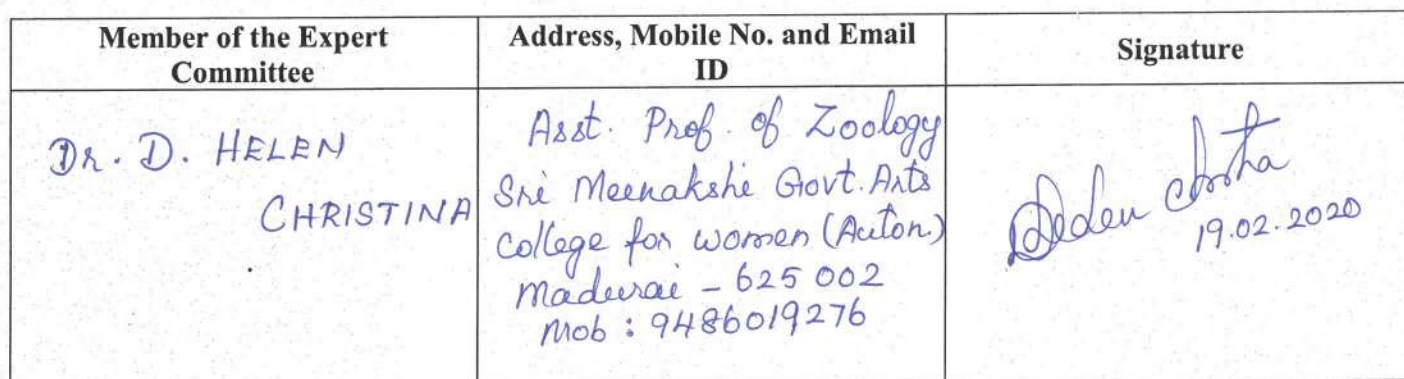 Member of the Expert
Committee
Address, Mobile No. and Email
ID
Signature
Dr. D. HELEN
CHRISTINA
Asst. Prof. of Zoology
Sri Meenakshi Govt. Arts
College for women (Auton.)
Madurai - 625 002
Mob : 9486019276
19.02.2020